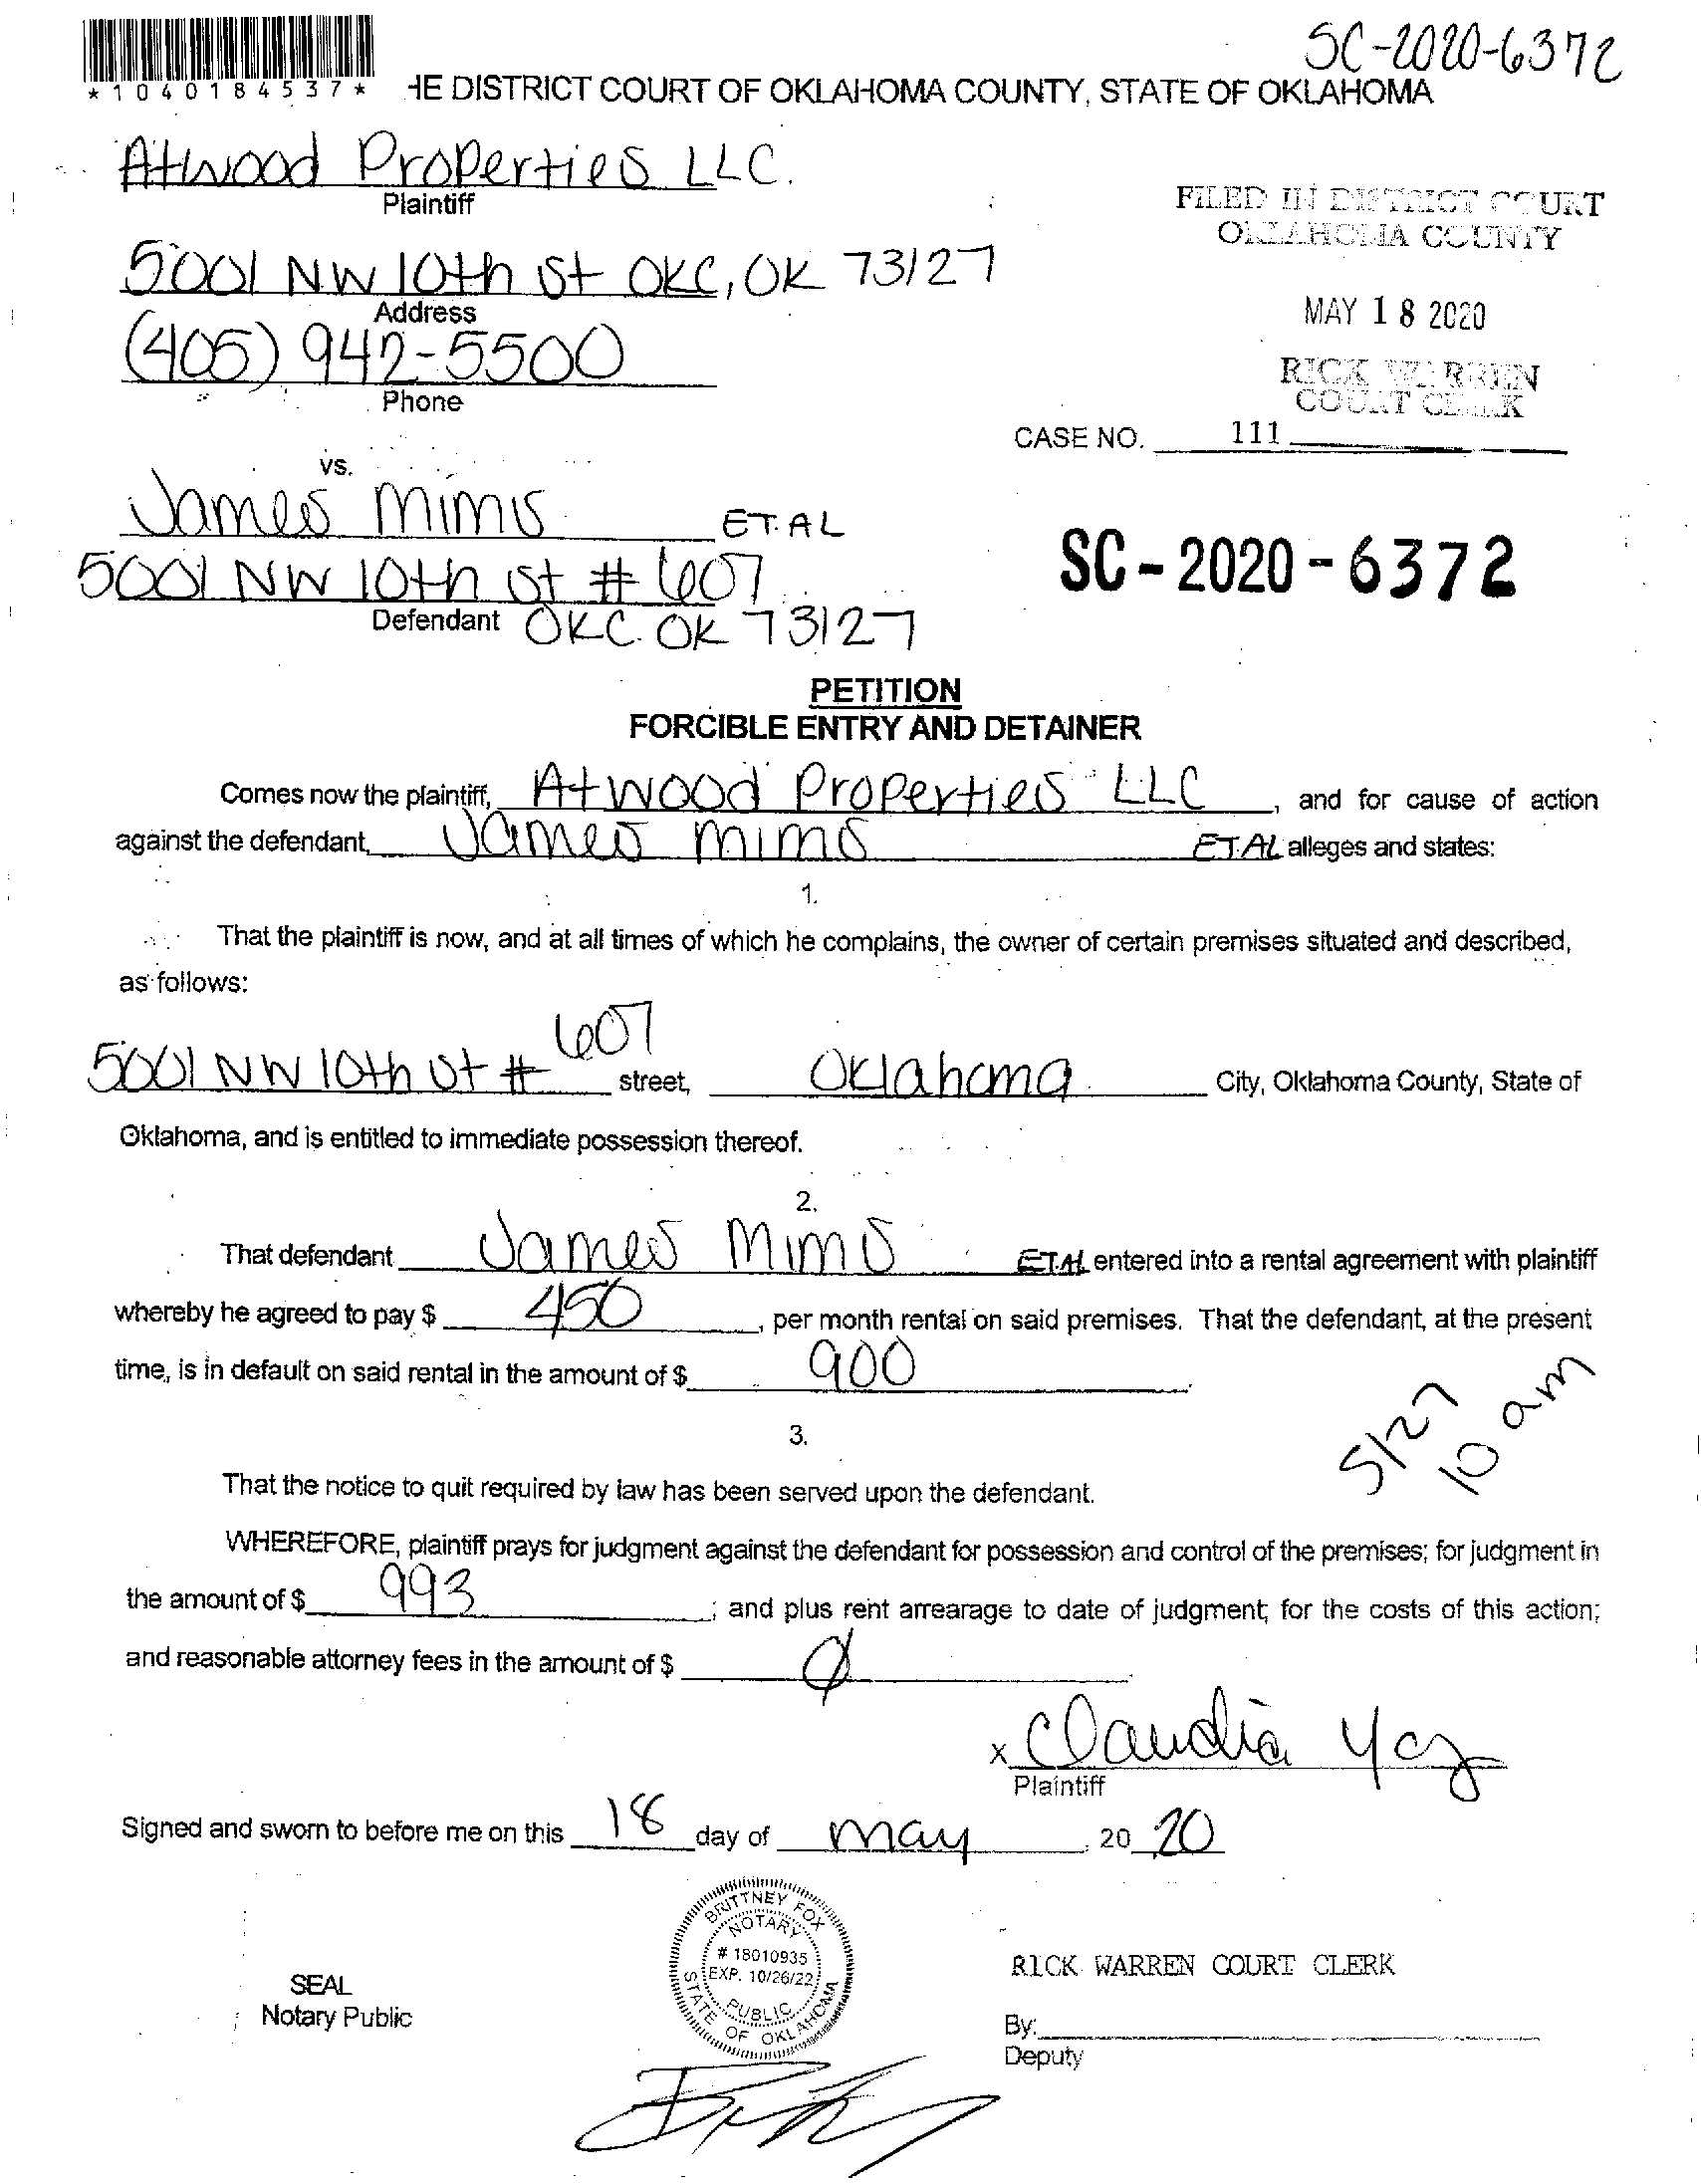 SC-2020-6372
*1040184537*
HE DISTRICT COURT OF OKLAHOMA COUNTY, STATE OF OKLAHOMA
Atwood Properties LLC.
Plaintiff
FILED IN DISTRICT COURT
OKLAHOMA COUNTY
5001 NW 10th St OKC, OK 73127
Address
MAY 18 2020
(405) 942-5500
Phone
RICK WARREN
COURT CLERK
CASE NO. 111
vs.
James Mims ET. AL
5001 NW 10th St # 607
Defendant OKC. OK 73127
SC-2020-6372
PETITION
FORCIBLE ENTRY AND DETAINER
Comes now the plaintiff, Atwood Properties LLC, and for cause of action
against the defendant, James Mims ET. AL alleges and states:
1.
That the plaintiff is now, and at all times of which he complains, the owner of certain premises situated and described,
as follows:
5001 NW 10th St # 607 street, Oklahoma City, Oklahoma County, State of
Oklahoma, and is entitled to immediate possession thereof.
2.
That defendant James Mims ET. AL entered into a rental agreement with plaintiff
whereby he agreed to pay $ 450, per month rental on said premises. That the defendant, at the present
time, is in default on said rental in the amount of $ 900.
5/27
10 am
3.
That the notice to quit required by law has been served upon the defendant.
WHEREFORE, plaintiff prays for judgment against the defendant for possession and control of the premises; for judgment in
the amount of $ 993; and plus rent arrearage to date of judgment; for the costs of this action;
and reasonable attorney fees in the amount of $ 0.
x Claudia
Plaintiff
Signed and sworn to before me on this 18 day of May, 20 20
BRITTNEY FOX
NOTARY
# 18010935
EXP. 10/26/22
PUBLIC
STATE OF OKLAHOMA
SEAL
Notary Public
RICK WARREN COURT CLERK
By:
Deputy